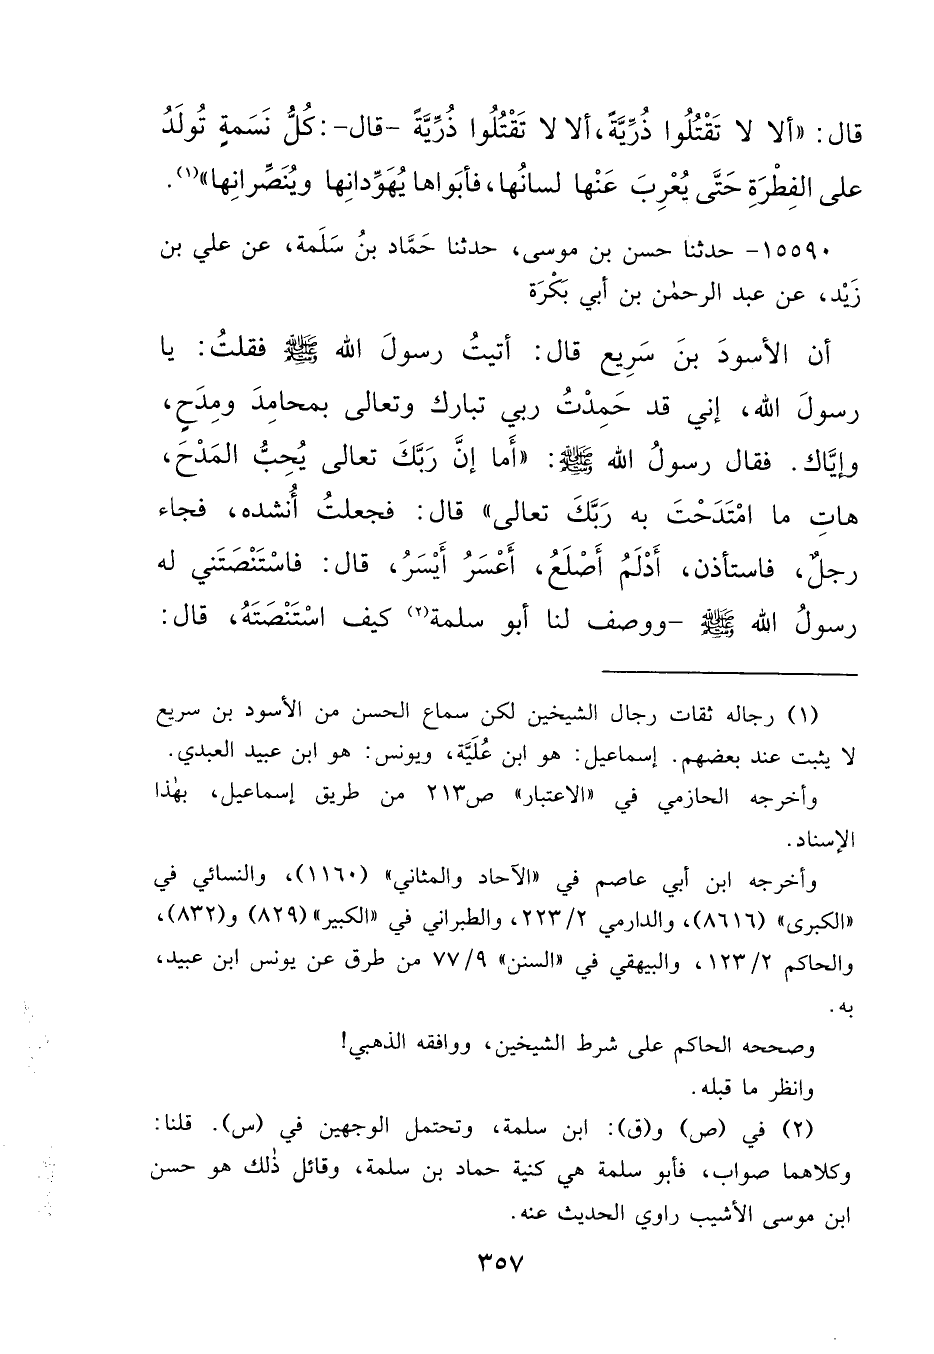 قال: «ألا لا تَقْتُلُوا ذُرِّيَّةً، ألا لا تَقْتُلُوا ذُرِّيَّةً -قال-: كُلُّ نَسَمةٍ تُولَدُ
على الفِطْرَةِ حَتَّى يُعْرِبَ عَنْها لسانُها، فأبَواها يُهَوِّدانِها ويُنَصِّرانِها»(١).
١٥٥٩٠- حدثنا حسن بن موسى، حدثنا حَمَّاد بنُ سَلَمة، عن علي بن
زَيْد، عن عبد الرحمٰن بن أبي بَكْرَة
أن الأسودَ بنَ سَرِيع قال: أتيتُ رسولَ الله ﷺ فقلتُ: يا
رسولَ الله، إني قد حَمِدْتُ ربي تبارك وتعالى بمحامِدَ ومِدَحٍ،
وإيَّاك. فقال رسولُ الله ﷺ: «أَما إنَّ رَبَّكَ تعالى يُحِبُّ المَدْحَ،
هاتِ ما امْتَدَحْتَ به رَبَّكَ تعالى» قال: فجعلتُ أُنشده، فجاء
رجلٌ، فاستأذن، أَدْلَمُ أَصْلَعُ، أَعْسَرُ أَيْسَرُ، قال: فاسْتَنْصَتَني له
رسولُ الله ﷺ -ووصف لنا أبو سلمة(٢) كيف اسْتَنْصَتَهُ، قال:
(١) رجاله ثقات رجال الشيخين لكن سماع الحسن من الأسود بن سريع
لا يثبت عند بعضهم. إسماعيل: هو ابن عُلَيَّة، ويونس: هو ابن عبيد العبدي.
وأخرجه الحازمي في «الاعتبار» ص٢١٣ من طريق إسماعيل، بهٰذا
الإسناد.
وأخرجه ابن أبي عاصم في «الآحاد والمثاني» (١١٦٠)، والنسائي في
«الكبرى» (٨٦١٦)، والدارمي ٢/ ٢٢٣، والطبراني في «الكبير» (٨٢٩) و(٨٣٢)،
والحاكم ٢/ ١٢٣، والبيهقي في «السنن» ٩/ ٧٧ من طرق عن يونس ابن عبيد،
به.
وصححه الحاكم على شرط الشيخين، ووافقه الذهبي!
وانظر ما قبله.
(٢) في (ص) و(ق): ابن سلمة، وتحتمل الوجهين في (س). قلنا:
وكلاهما صواب، فأبو سلمة هي كنية حماد بن سلمة، وقائل ذٰلك هو حسن
ابن موسى الأشيب راوي الحديث عنه.
٣٥٧